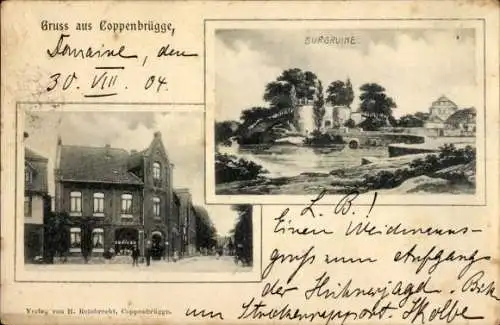 Gruss aus Coppenbrügge,
Domaine, den
30. VIII. 04.
BURGRUINE
L. B.!
Einen Weidmanns-
gruß zum Aufgang
der Hühnerjagd.
um Streckenrapport
Verlag von H. Rembrecht, Coppenbrügge.